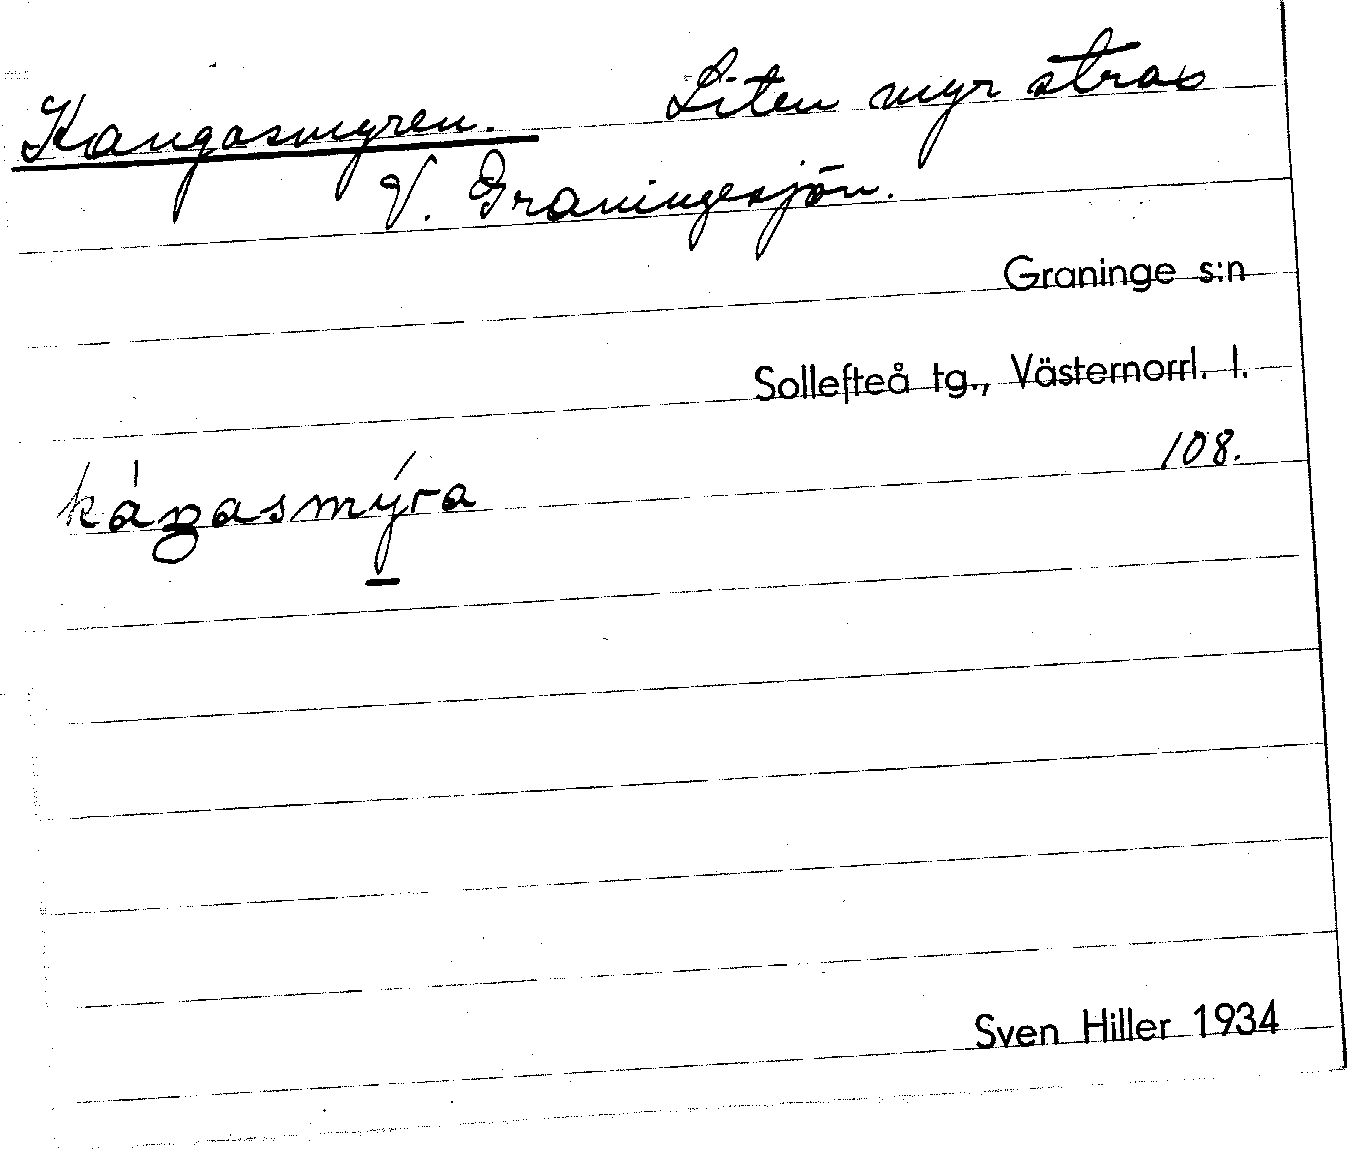 Kangasmyren. Liten myr strax
V. Graningesjön.
Graninge s:n
Sollefteå tg., Västernorrl. l.
108.
káŋasmýra
Sven Hiller 1934